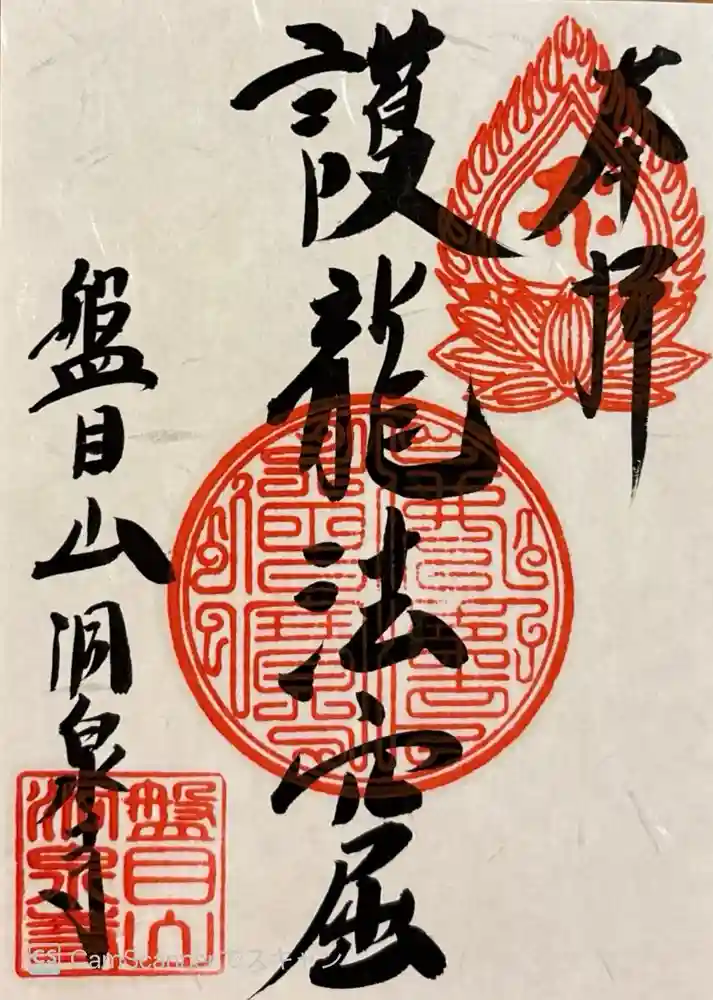 奉拝
護龍法窟
盤目山洞泉寺
盤目山
洞泉寺
CamScannerでスキャン